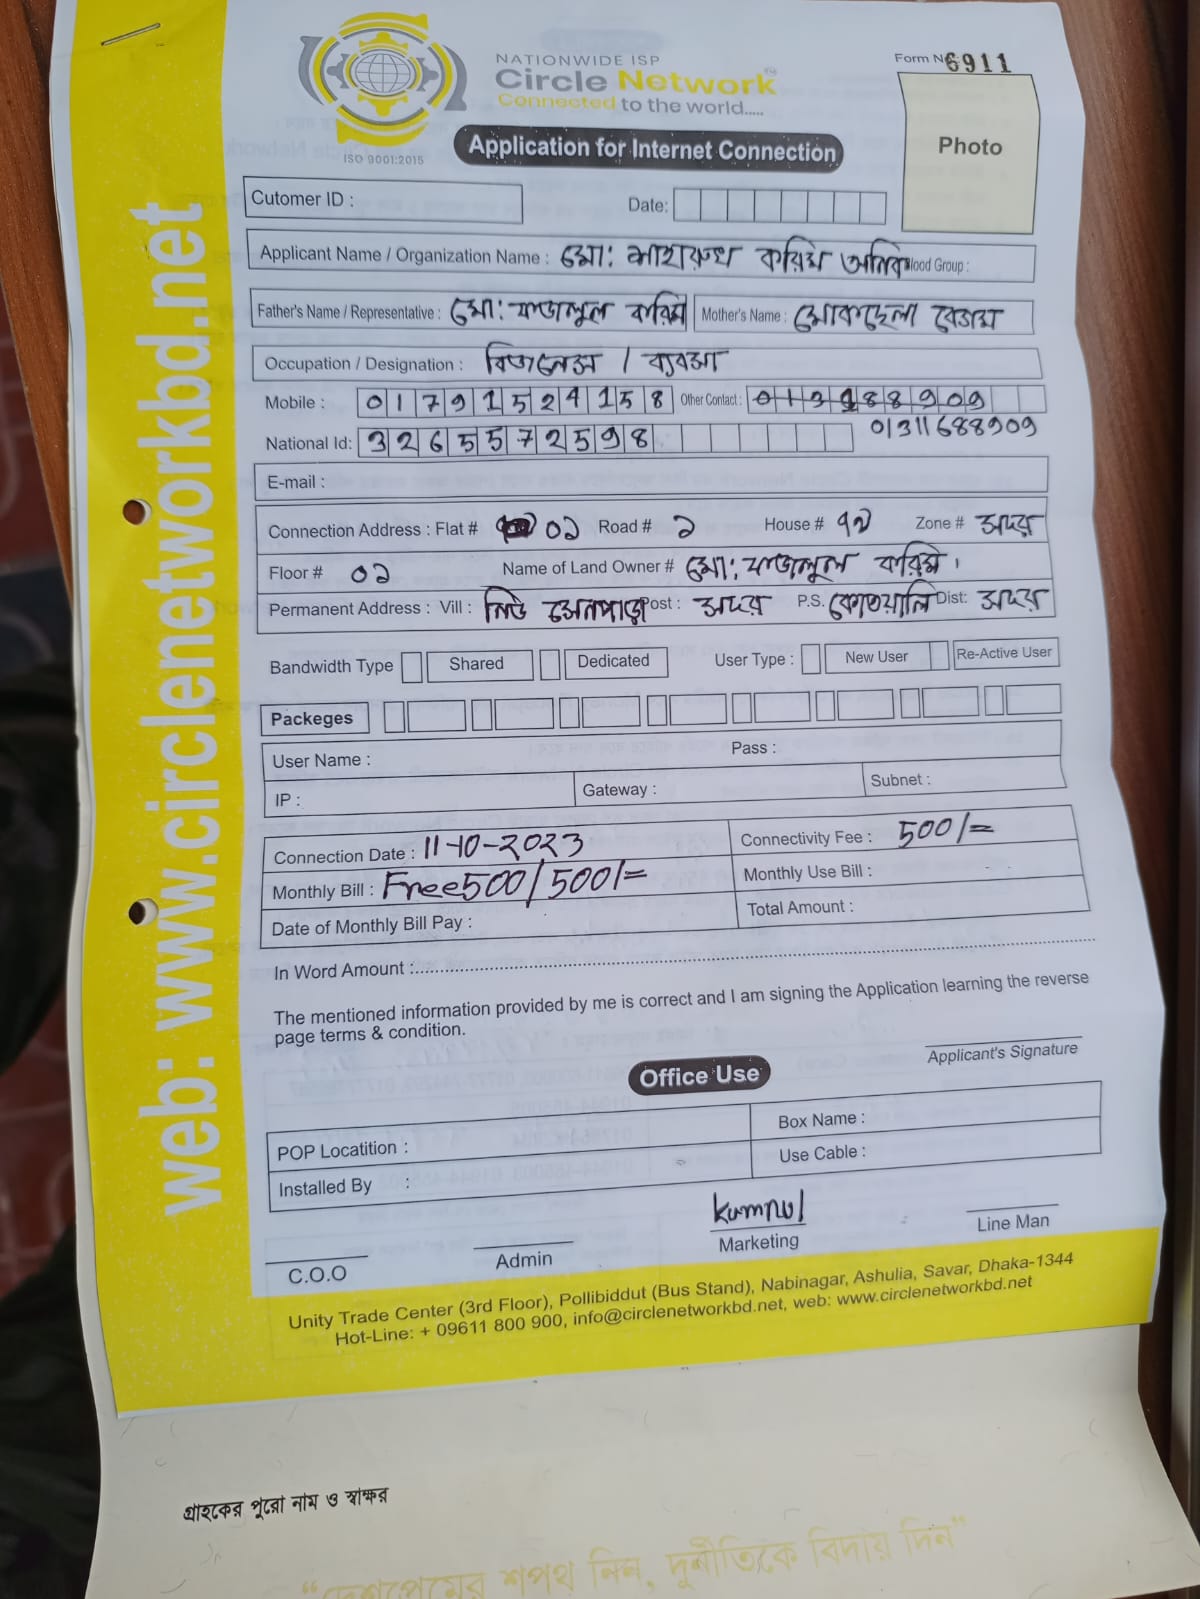 NATIONWIDE ISP
Circle Network
Connected to the world.....
ISO 9001:2015
Form No 6911
Photo
Application for Internet Connection
Cutomer ID :
Date:
Applicant Name / Organization Name : মো: শাহারুখ করিম অনিক Blood Group :
Father's Name / Representative : মো: ফজলুল করিম Mother's Name : মোকছেলা বেগম
Occupation / Designation : বিজনেস / ব্যবসা
Mobile : 01791524158 Other Contact :
01311688909
National Id: 3265572598
E-mail :
Connection Address : Flat # ০১ Road # ১ House # ৭২ Zone # সদর
Floor # ০১ Name of Land Owner # মো: ফজলুল করিম।
Permanent Address : Vill : নিউ সেনপাড়া Post : সদর P.S. কোতয়ালি Dist: সদর
Bandwidth Type Shared Dedicated User Type : New User Re-Active User
Packeges
User Name : Pass :
IP : Gateway : Subnet :
Connection Date : 11-10-2023 Connectivity Fee : 500/=
Monthly Bill : Free500/500/= Monthly Use Bill :
Date of Monthly Bill Pay : Total Amount :
In Word Amount :
The mentioned information provided by me is correct and I am signing the Application learning the reverse
page terms & condition.
Applicant's Signature
Office Use
POP Locatition : Box Name :
Installed By : Use Cable :
C.O.O Admin Marketing Line Man
Unity Trade Center (3rd Floor), Pollibiddut (Bus Stand), Nabinagar, Ashulia, Savar, Dhaka-1344
Hot-Line: + 09611 800 900, info@circlenetworkbd.net, web: www.circlenetworkbd.net
web: www.circlenetworkbd.net
গ্রাহকের পুরো নাম ও স্বাক্ষর
“দেশপ্রেমের শপথ নিন, দুর্নীতিকে বিদায় দিন”